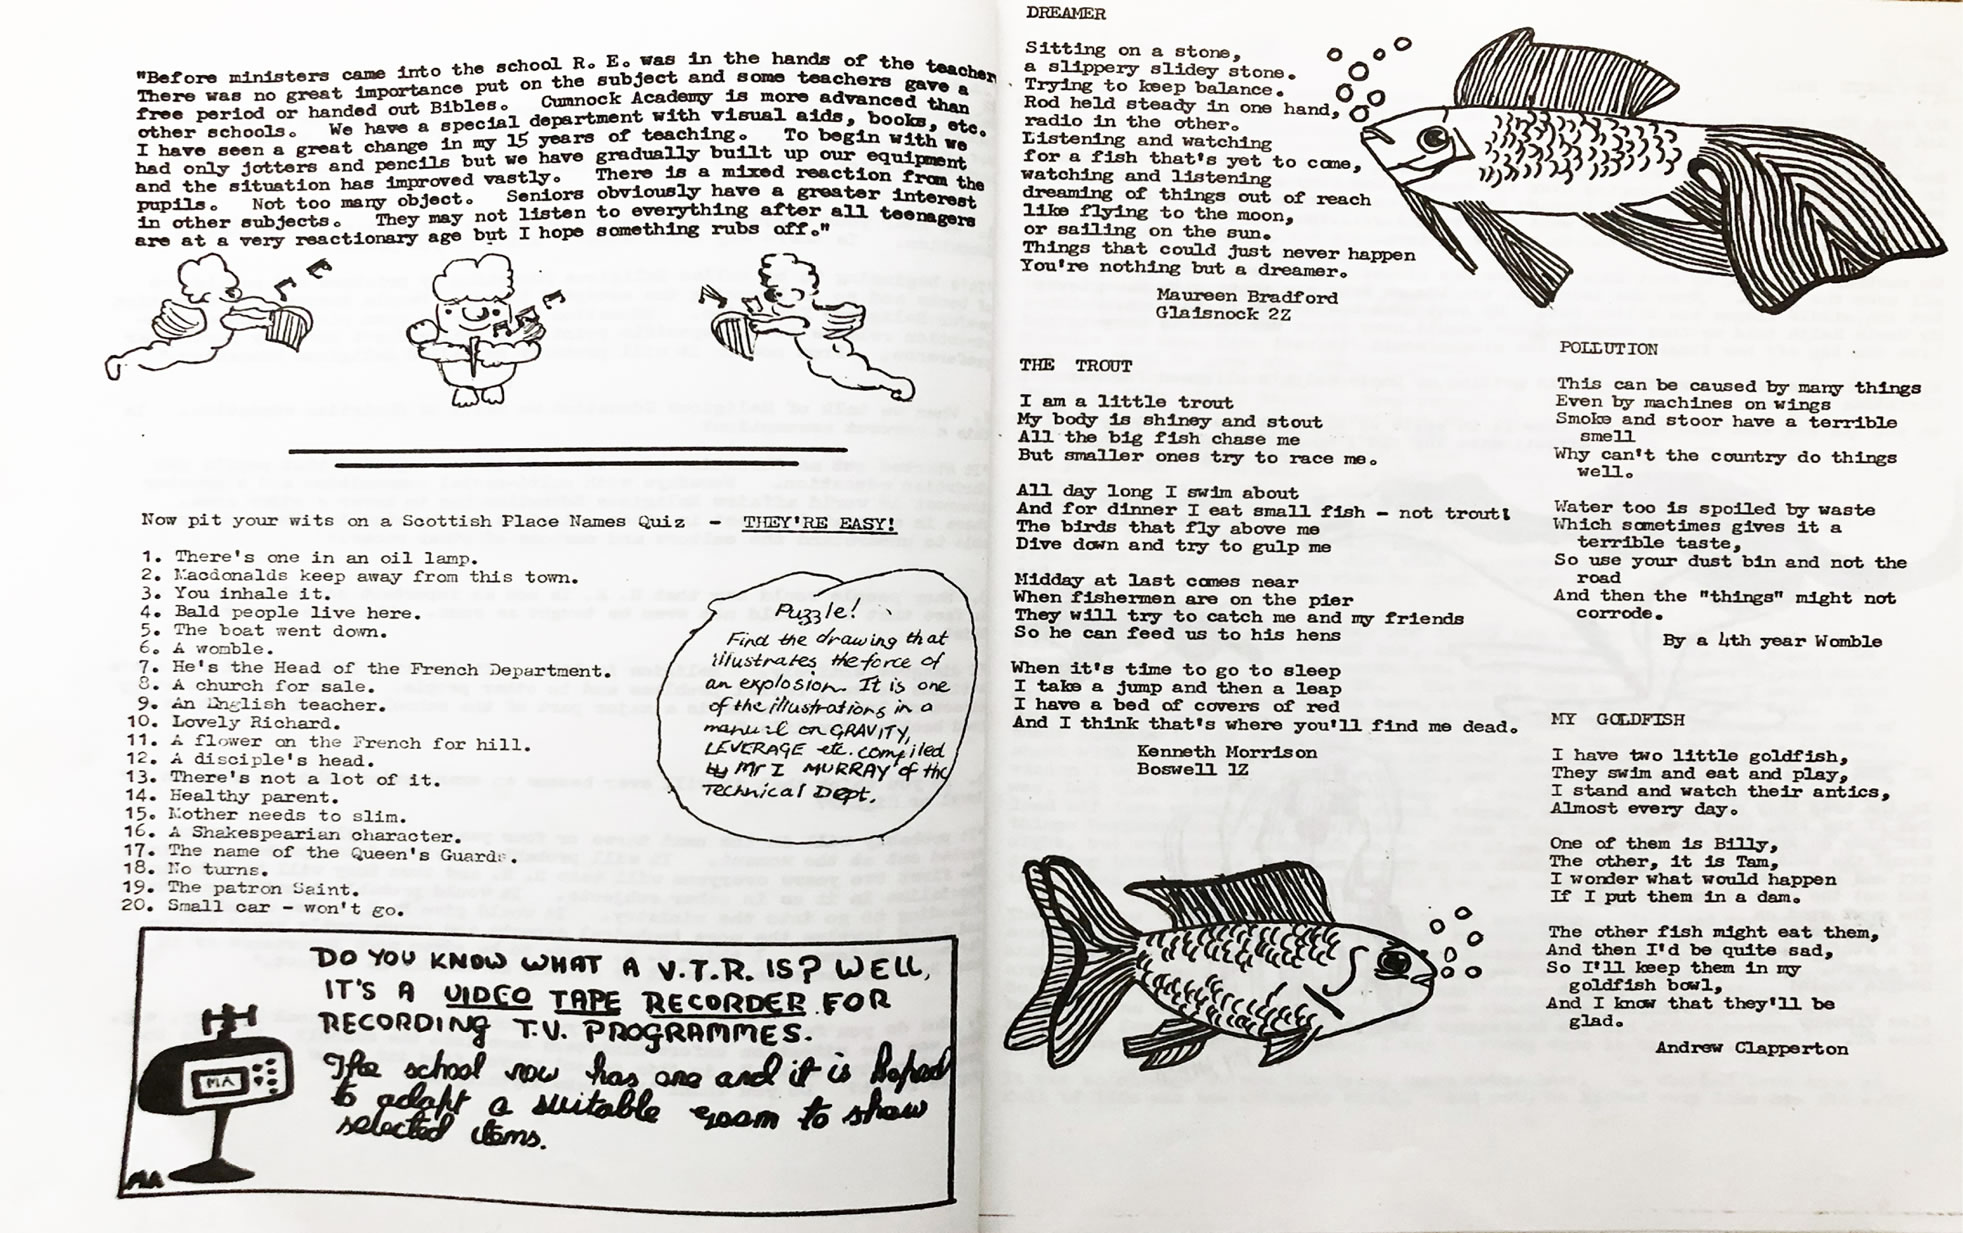 "Before ministers came into the school R. E. was in the hands of the teacher
There was no great importance put on the subject and some teachers gave a
free period or handed out Bibles. Cumnock Academy is more advanced than
other schools. We have a special department with visual aids, books, etc.
I have seen a great change in my 15 years of teaching. To begin with we
had only jotters and pencils but we have gradually built up our equipment
and the situation has improved vastly. There is a mixed reaction from the
pupils. Not too many object. Seniors obviously have a greater interest
in other subjects. They may not listen to everything after all teenagers
are at a very reactionary age but I hope something rubs off."
Now pit your wits on a Scottish Place Names Quiz - THEY'RE EASY!
1. There's one in an oil lamp.
2. Macdonalds keep away from this town.
3. You inhale it.
4. Bald people live here.
5. The boat went down.
6. A womble.
7. He's the Head of the French Department.
8. A church for sale.
9. An English teacher.
10. Lovely Richard.
11. A flower on the French for hill.
12. A disciple's head.
13. There's not a lot of it.
14. Healthy parent.
15. Mother needs to slim.
16. A Shakespearian character.
17. The name of the Queen's Guards.
18. No turns.
19. The patron Saint.
20. Small car - won't go.
Puzzle!
Find the drawing that
illustrates the force of
an explosion. It is one
of the illustrations in a
manual on GRAVITY,
LEVERAGE etc. compiled
by Mr I MURRAY of the
Technical Dept.
DO YOU KNOW WHAT A V.T.R. IS? WELL,
IT'S A VIDEO TAPE RECORDER FOR
RECORDING T.V. PROGRAMMES.
The school now has one and it is hoped
to adapt a suitable room to show
selected items.
MA
MA
DREAMER
Sitting on a stone,
a slippery slidey stone.
Trying to keep balance.
Rod held steady in one hand,
radio in the other.
Listening and watching
for a fish that's yet to come,
watching and listening
dreaming of things out of reach
like flying to the moon,
or sailing on the sun.
Things that could just never happen
You're nothing but a dreamer.
Maureen Bradford
Glaisnock 2Z
THE TROUT
I am a little trout
My body is shiney and stout
All the big fish chase me
But smaller ones try to race me.
All day long I swim about
And for dinner I eat small fish - not trout!
The birds that fly above me
Dive down and try to gulp me
Midday at last comes near
When fishermen are on the pier
They will try to catch me and my friends
So he can feed us to his hens
When it's time to go to sleep
I take a jump and then a leap
I have a bed of covers of red
And I think that's where you'll find me dead.
Kenneth Morrison
Boswell 1Z
POLLUTION
This can be caused by many things
Even by machines on wings
Smoke and stoor have a terrible
smell
Why can't the country do things
well.
Water too is spoiled by waste
Which sometimes gives it a
terrible taste,
So use your dust bin and not the
road
And then the "things" might not
corrode.
By a 4th year Womble
MY GOLDFISH
I have two little goldfish,
They swim and eat and play,
I stand and watch their antics,
Almost every day.
One of them is Billy,
The other, it is Tam,
I wonder what would happen
If I put them in a dam.
The other fish might eat them,
And then I'd be quite sad,
So I'll keep them in my
goldfish bowl,
And I know that they'll be
glad.
Andrew Clapperton